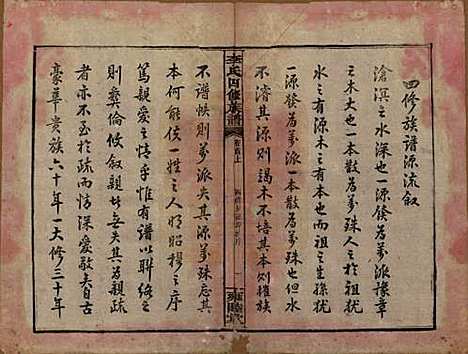 四修族譜源流叙
滄溟之水深也一源發為萬派豫章
之木大也一本散為萬殊人之於族猶
水之有源木之有本而祖之生孫猶
一源發為萬派一本散為萬殊也但水
不濬其源則竭木不培其本則摧族
不譜帙則萬派失其源萬殊忘其
本何能使一姓之人明昭穆之序
篤親愛之情乎惟有譜以聯絡之
則彝倫攸叙親者無失其為親疏
者亦不至於疏而情深愛敬矣自古
豪華貴族六十年一大修三十年
李氏四修族譜
卷首上
雍睦堂